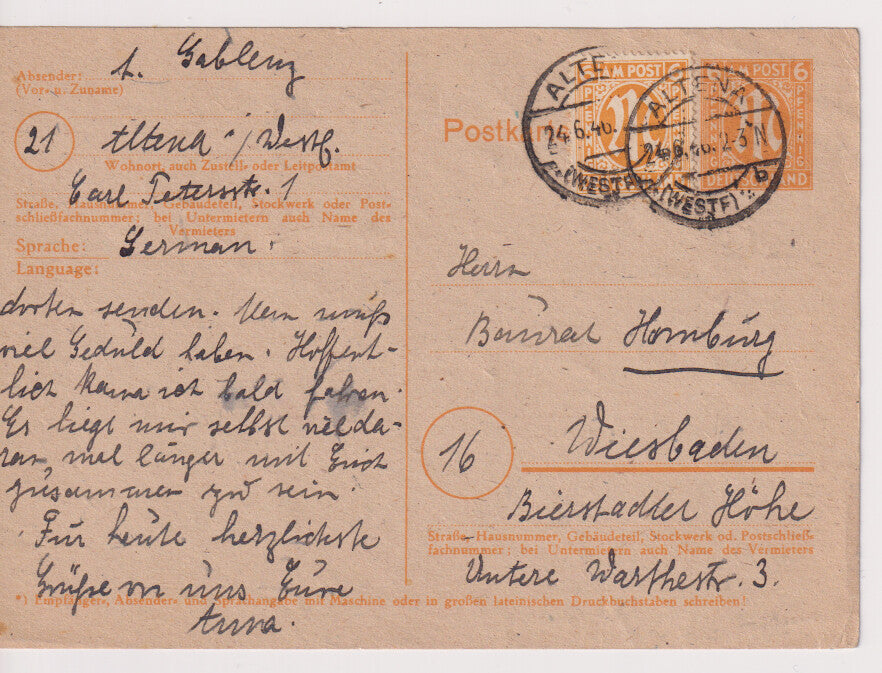 Absender:
(Vor- u. Zuname)
A. Gablenz
21 Altena i/Westf.
Wohnort, auch Zustell- oder Leitpostamt
Carl Petersstr. 1
Straße, Hausnummer, Gebäudeteil, Stockwerk oder Post-
schließfachnummer; bei Untermietern auch Name des
Vermieters
Sprache: German.
Language:
dorten senden. Man muß
viel Geduld haben. Hoffent-
lich kann ich bald fahren.
Es liegt mir selbst viel da-
ran, mal länger mit Euch
zusammen zu sein.
Für heute herzlichste
Grüße von uns Eure
Anna.
Postkarte
AM POST 6
AM POST 6
PFENNIG
DEUTSCHLAND
ALTE
24.6.46.
(WESTF)
ALTENA
24.6.46. 2-3 N
(WESTF) b
Herrn
Baurat Homburg
16 Wiesbaden
Bierstadter Höhe
Straße, Hausnummer, Gebäudeteil, Stockwerk od. Postschließ-
fachnummer; bei Untermietern auch Name des Vermieters
Untere Warthestr. 3.
*) Empfänger-, Absender- und Sprachangabe mit Maschine oder in großen lateinischen Druckbuchstaben schreiben!